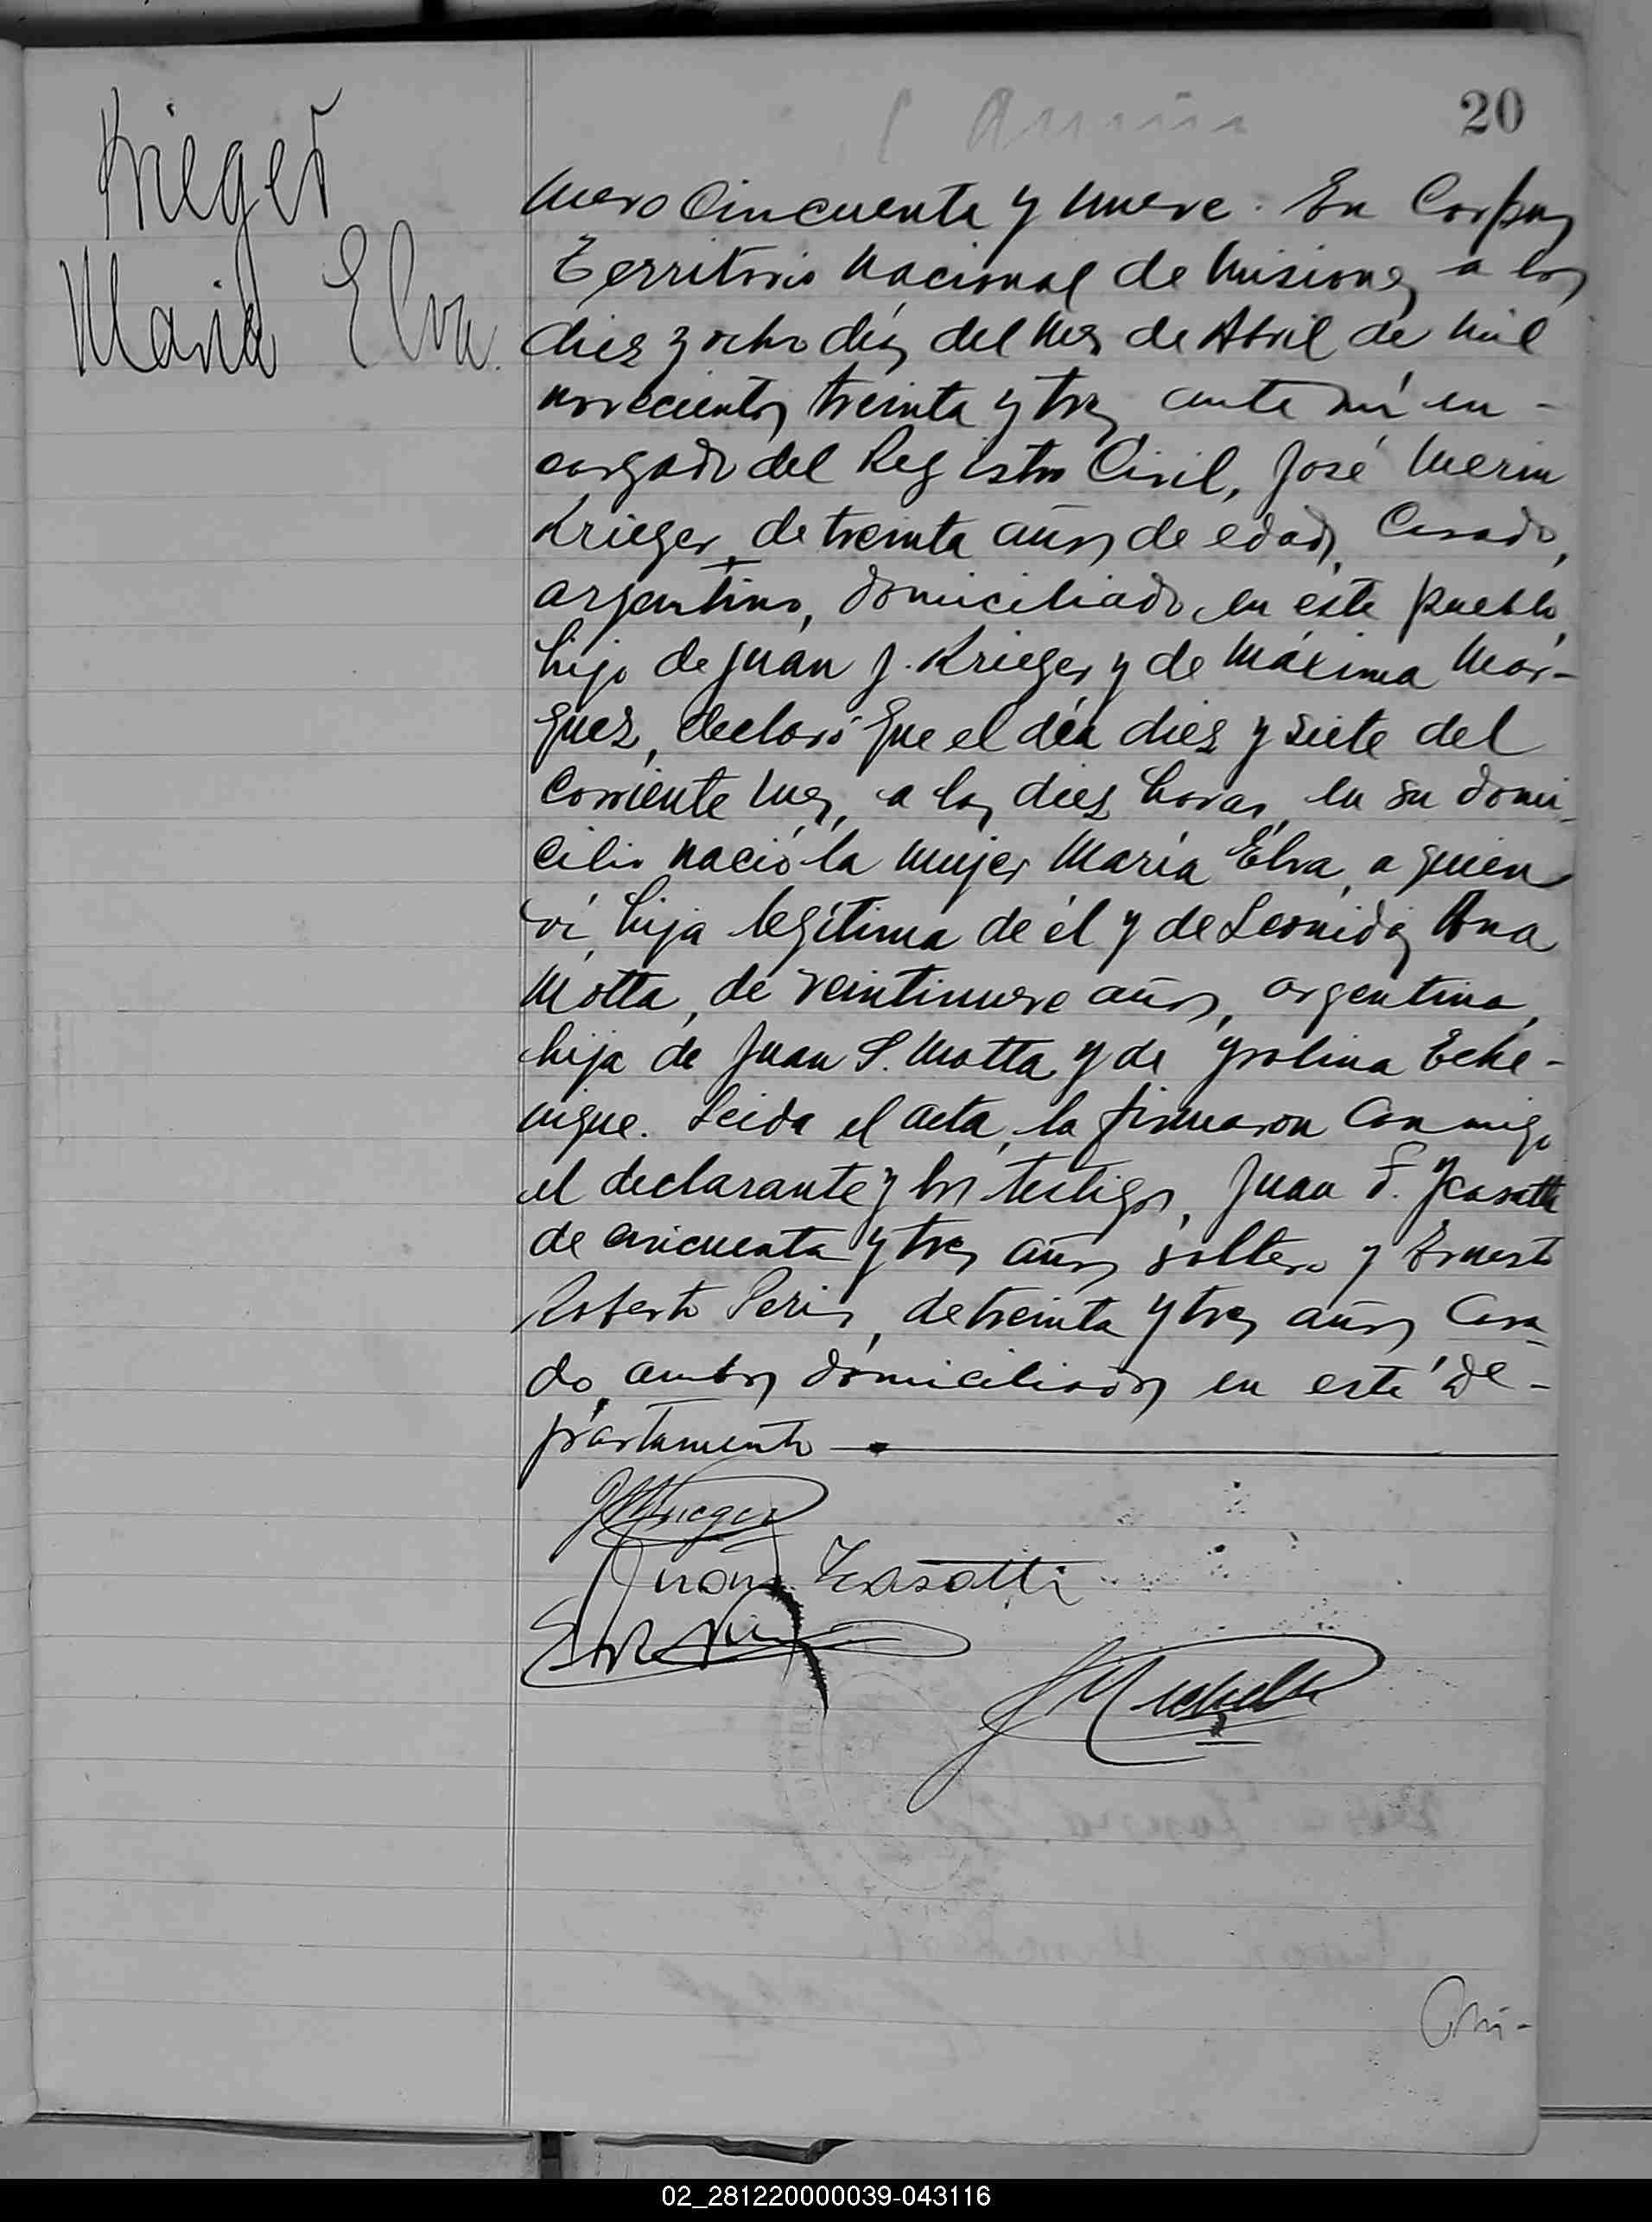 20
Krieger
Maria Elva.
mero Cincuenta y nueve. En Corpus
Territorio Nacional de Misiones, a los
diez y ocho días del mes de Abril de mil
novecientos treinta y tres, ante mí en-
cargado del Registro Civil, José Merin
Krieger, de treinta años de edad, Casado,
argentino, domiciliado en este pueblo,
hijo de Juan J. Krieger y de Máxima Mar-
quez, declaró que el día diez y siete del
corriente mes, a las diez horas, en su domi-
cilio nació la mujer María Elva, a quien
ví, hija legítima de él y de Leonidas Ana
Motta, de veintinueve años, argentina,
hija de Juan S. Motta y de Yrolina Eche-
nique. Leida el acta, la firmaron Conmigo
el declarante y los testigos, Juan F.
de cincuenta y tres años soltero y Ernesto
Roberto Peris, de treinta y tres años Casa-
do, ambos domiciliados en este De-
partamento
JMKrieger
Juan
02_281220000039-043116